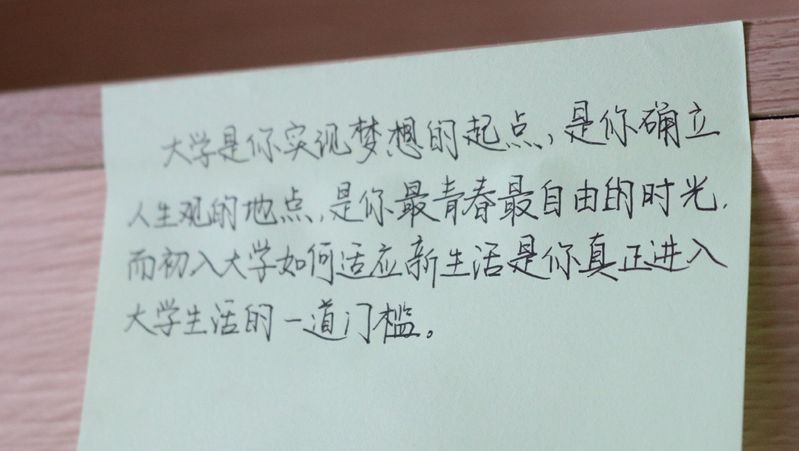 大学是你实现梦想的起点,是你确立
人生观的地点,是你最青春最自由的时光.
而初入大学如何适应新生活是你真正进入
大学生活的一道门槛。